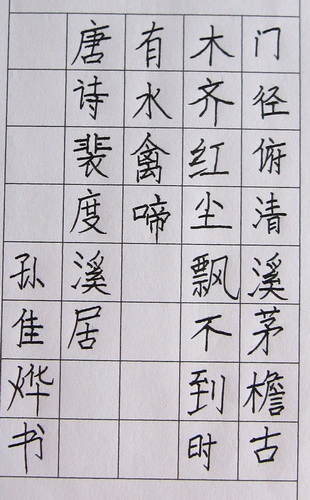 门径俯清溪茅檐古
木齐红尘飘不到时
有水禽啼
唐诗裴度溪居
孙佳烨书